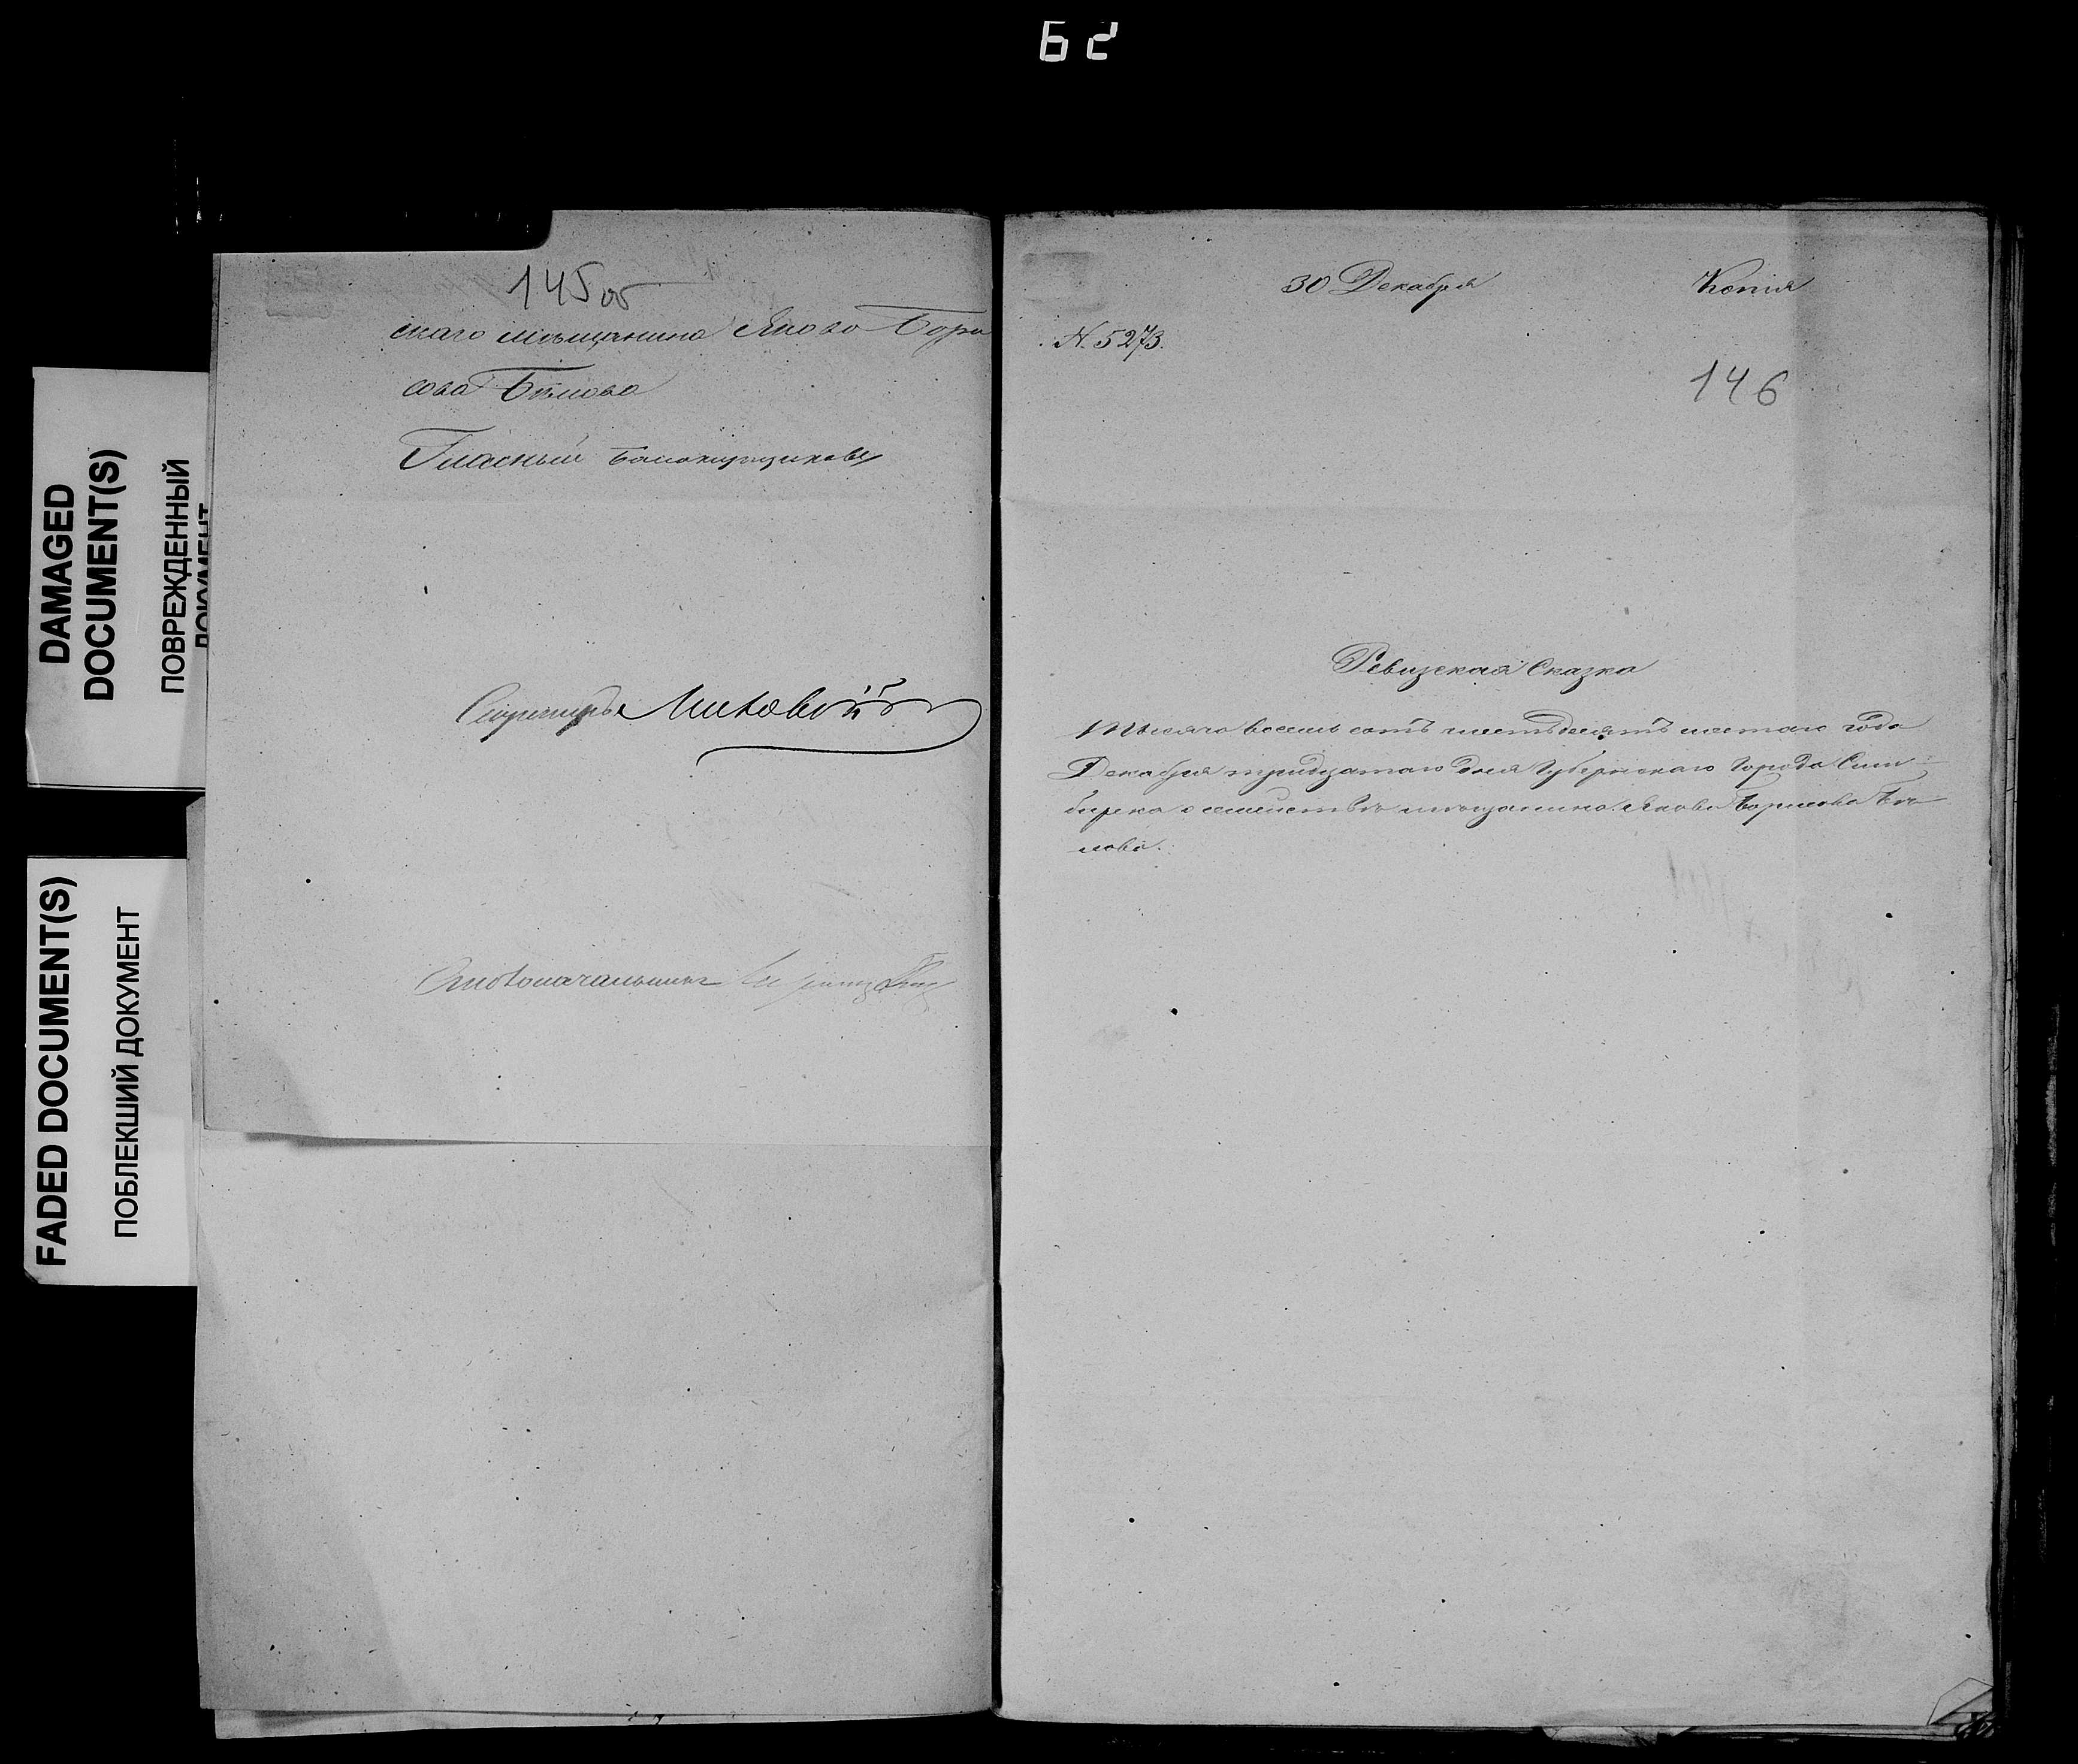 62
DAMAGED
DOCUMENT(S)
ПОВРЕЖДЕННЫЙ
ДОКУМЕНТ
FADED DOCUMENT(S)
ПОБЛЕКШИЙ ДОКУМЕНТ
145 об
скаго мѣщанина Якова Бори
сова Бѣлова
Гласный
Секретарь
Столоначальникъ
30 Декабря Копія
N. 5273.
146
Ревизская Сказка
Тысяча восемь сотъ шестьдесятъ шестаго года
Декабря тридцатаго дня Губернскаго Города Сим
бирска о семействѣ мѣщанина Якова Борисова Бѣ
лова.